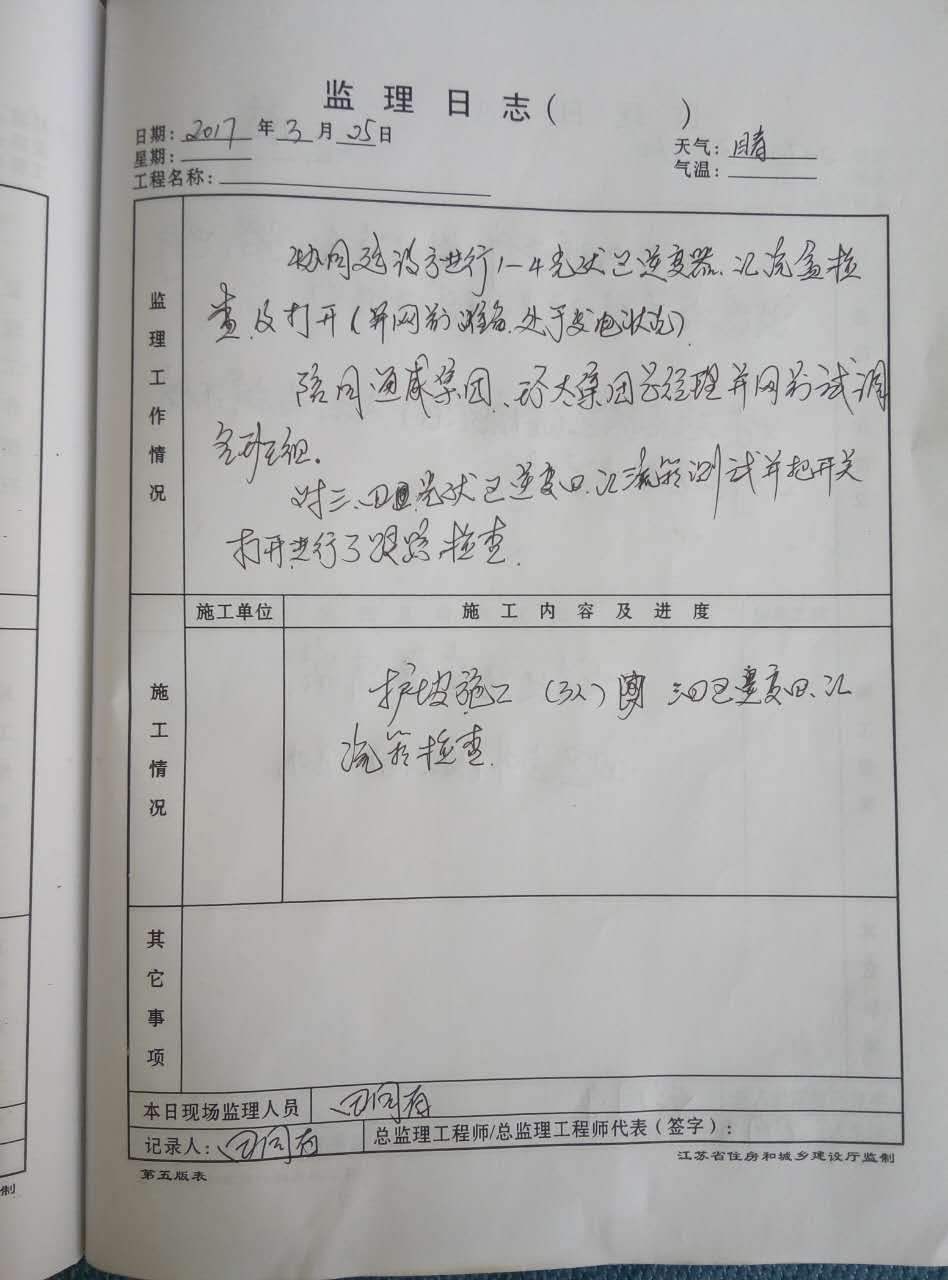 监理日志( )
日期:2017年3月25日
星期:
天气:晴
气温:
工程名称:
监理工作情况
协同建设方进行1-4光伏区逆变器、汇流盒检
查及打开(并网前准备、处于发电状况)
陪同通威集团、环太集团总经理并网前试调
各班组.
对三、四光伏区逆变、汇流箱测试并把开关
打开进行了跟踪检查.
施工单位
施工内容及进度
施工情况
护坡施工(3人) 三四区逆变、汇
流箱检查.
其它事项
本日现场监理人员
记录人:
总监理工程师/总监理工程师代表(签字):
第五版表
江苏省住房和城乡建设厅监制
制